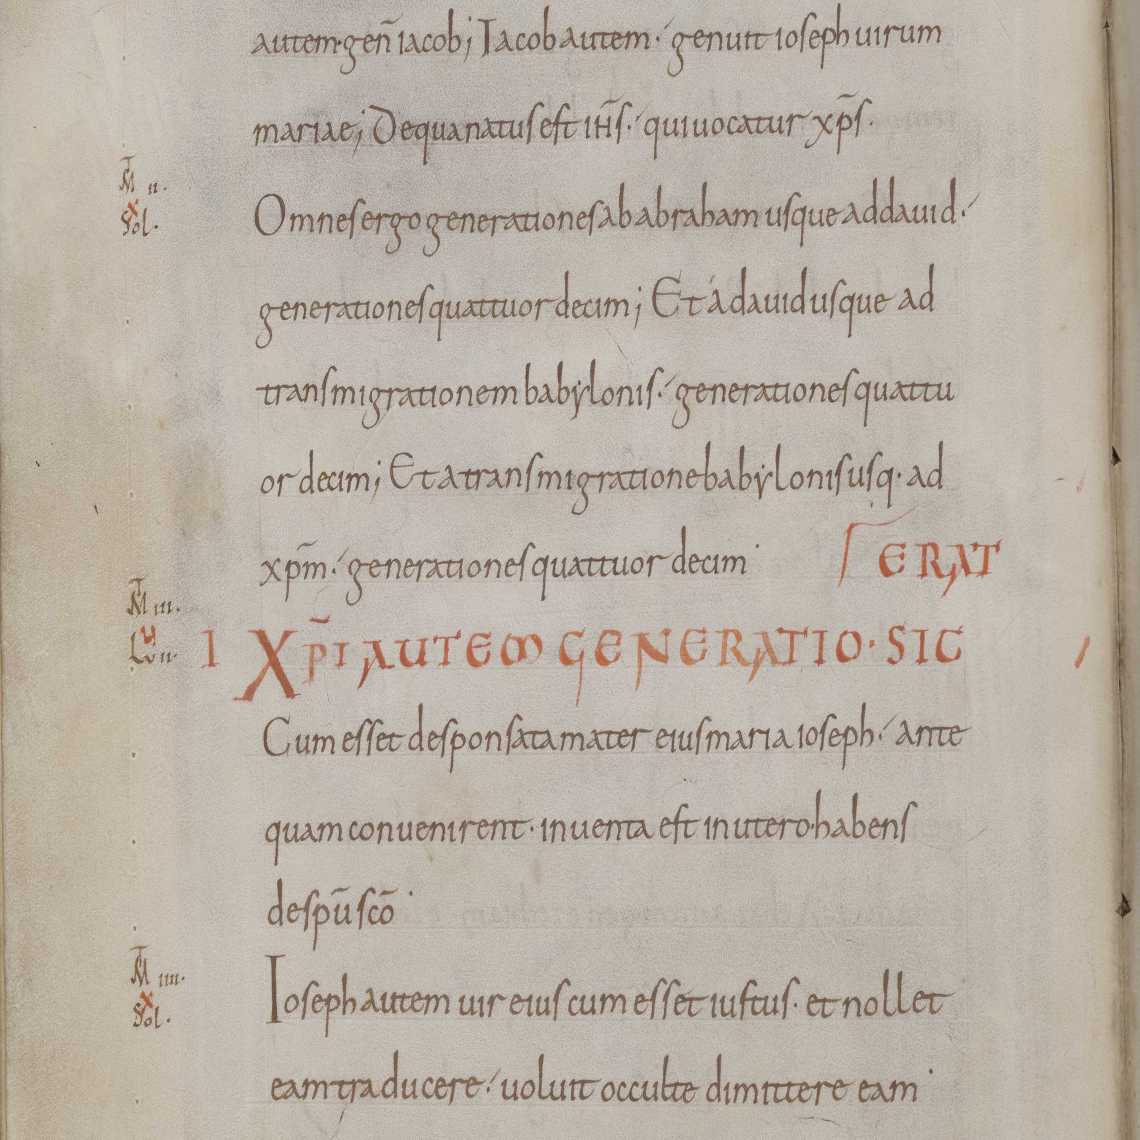 autem·geñ iacob; Iacob autem·́ genuit ioseph uirum
mariae; Dequa natus est ih̅s·́ qui uocatur xp̅s·
M̅ ii.
X
Sol.
Omnes ergo generationes ab abraham usque ad dauid·́
generationes quattuor decim; Et á dauid usque ad
transmigrationem babẏlonis·́ generationes quattu
or decim; Et a transmigratione babẏlonis usq· ad
xp̅m·́ generationes quattuor decim·
ERAT
M̅ iii.
I XP̅I AUTEM GENERATIO· SIC
Cum esset desponsata mater eius maria ioseph·́ ante
quam conuenirent· inuenta est in utero habens
de sp̅u sc̅o·
M̅ iiii.
X
Sol.
Ioseph autem uir eius cum esset iustus· et nollet
eam traducere·́ uoluit occulte dimittere eam·